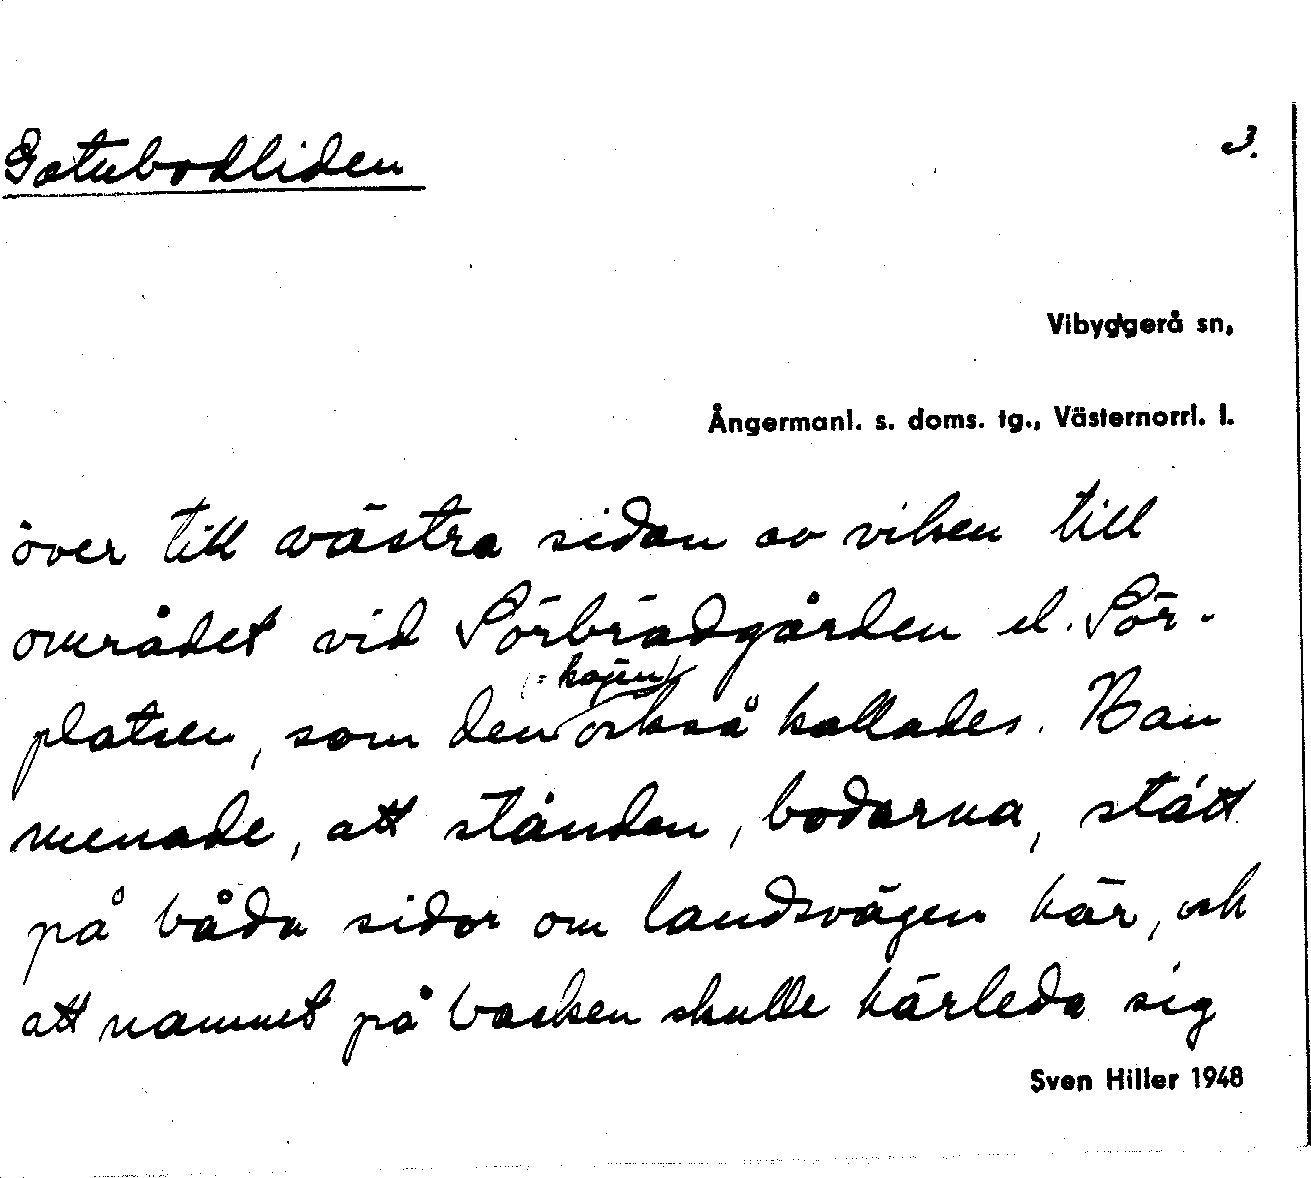 Gatubodliden
3.
Vibyggerå sn,
Ångermanl. s. doms. tg., Västernorrl. l.
över till västra sidan av viken till
området vid Sörbrädgården el. Sör-
platsen, som den också kallades. Man
menade, att stånden, bodarna, stått
på båda sidor om landsvägen här, och
att namnet på backen skulle härleda sig
Sven Hiller 1948